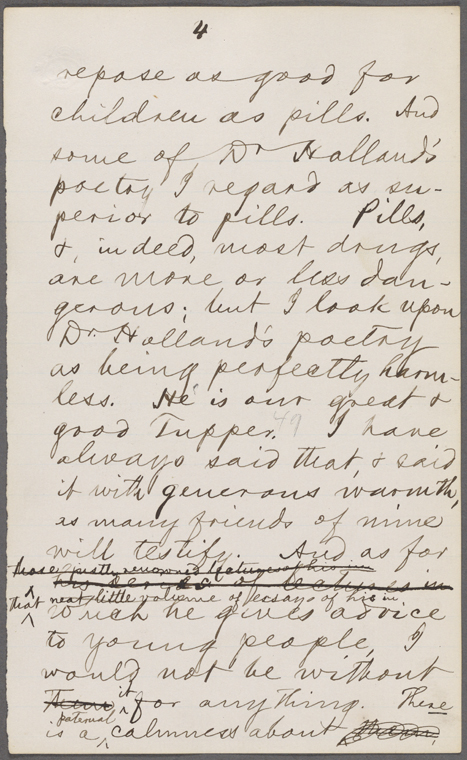 4
repose as good for
children as pills. And
some of Dr Holland's
poetry I regard as su-
perior to pills. Pills,
&, indeed, most drugs,
are more or less dan-
gerous; but I look upon
Dr. Holland's poetry
as being perfectly harm-
less. He is our great &
good Tupper. 49 I have
always said that, & said
it with generous warmth,
as many friends of mine
will testify. And as for
those justly renowned lectures of his in
his series of lectures in
that neat little volume of essays of his in
which he gives advice
to young people, I
would not be without
them it for anything. There
paternal
is a calmness about them,